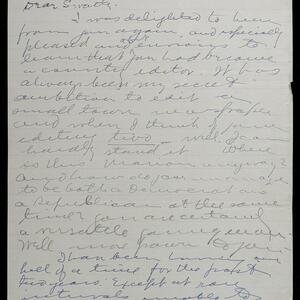 Dear Swatty,
I was delighted to hear
from you again, and especially
pleased and envious to
learn that you had become
a country editor. It has
always been my secret
ambition to edit a
small town newspaper
and when I think of you
editing two well I can
hardly stand it. Where
is this Marion anyway?
And how do you manage
to be both a Democrat and
a Republican at the same
time? You are certainly
a versatile young man.
Well more power to you.
I had been
hell of a time for the past
two years. Except at rare
intervals unable to